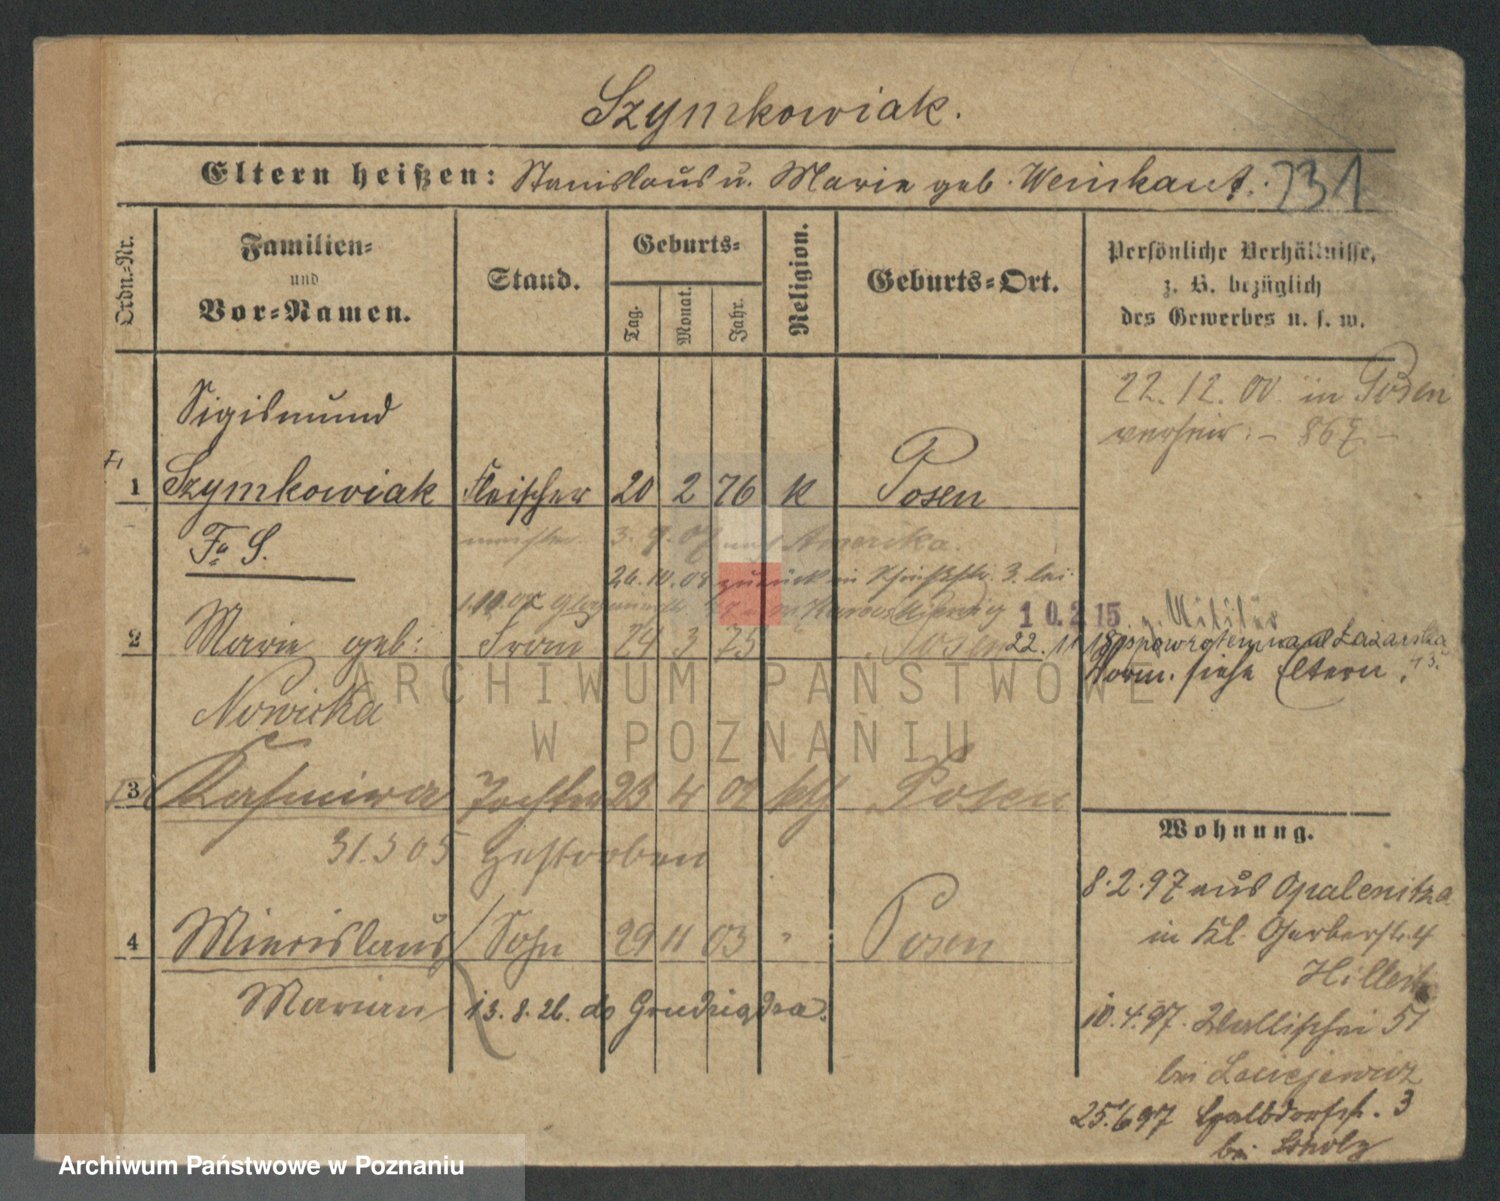 Szymkowiak.
Eltern heißen: Stanislaus u. Marie geb. Weinkauf. 731
Ordn.-Nr.
Familien-
und
Vor-Namen.
Stand.
Geburts-
Tag.
Monat.
Jahr.
Religion.
Geburts-Ort.
Persönliche Verhältnisse,
z. B. bezüglich
des Gewerbes u. s. w.
22.12.00 in Posen
verheir: – 867 –
Sigismund
1 Szymkowiak Fleischer 20 2 76 K Posen
meister. 3.9.07 nach Amerika.
Fa. S.
26.10.08 zurück in 3. bei
1.10.07
10.2.15 z. Militär
2 Marie geb: Frau 24 3 75 Posen
22.11.18 z powrotem Łazarska
Vorm. siehe Eltern. 13.
Nowicka
ARCHIWUM PAŃSTWOWE
W POZNANIU
3 Kasimira Tochter 23 4 02 kth Posen
31.3 05 Gestorben
4 Miecislaus Sohn 29 11 03 " Posen
Marian 13.8.26. do Grudziądza.
Wohnung.
8.2.97 aus Opalenitza
in Kl. Gerberstr. 4
Hillert
10.4.97. Wallischei 51
bei Maciejewicz
25.6.97 Halbdorfstr. 3
bei Scholz
Archiwum Państwowe w Poznaniu